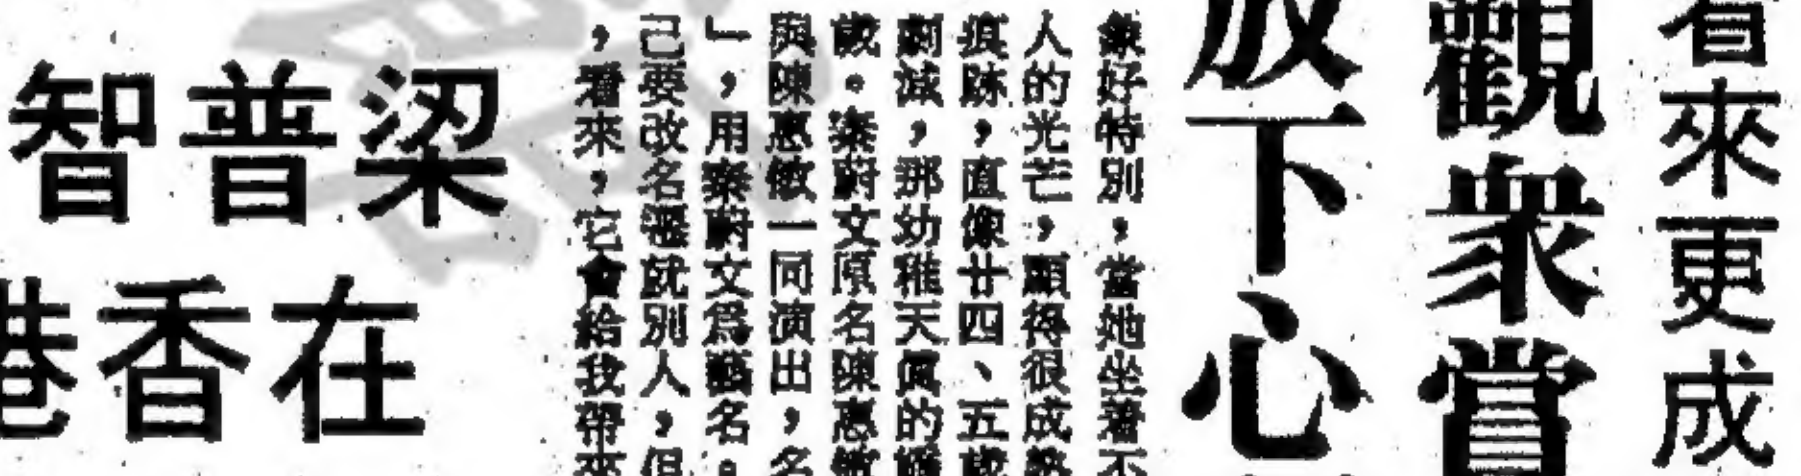 看來更成
觀衆賞
放下心
象好特別，當她坐着不
人的光芒，顯得很成熟
痕跡，直像廿四、五歲
劇減，那幼稚天真的
歲。蔚文原名陳惠敏
與陳惠敏一同演出，名
」，用蔚文爲藝名。
己要改名遷就別人，但
，看來，它會給我帶來
梁普智
在香港